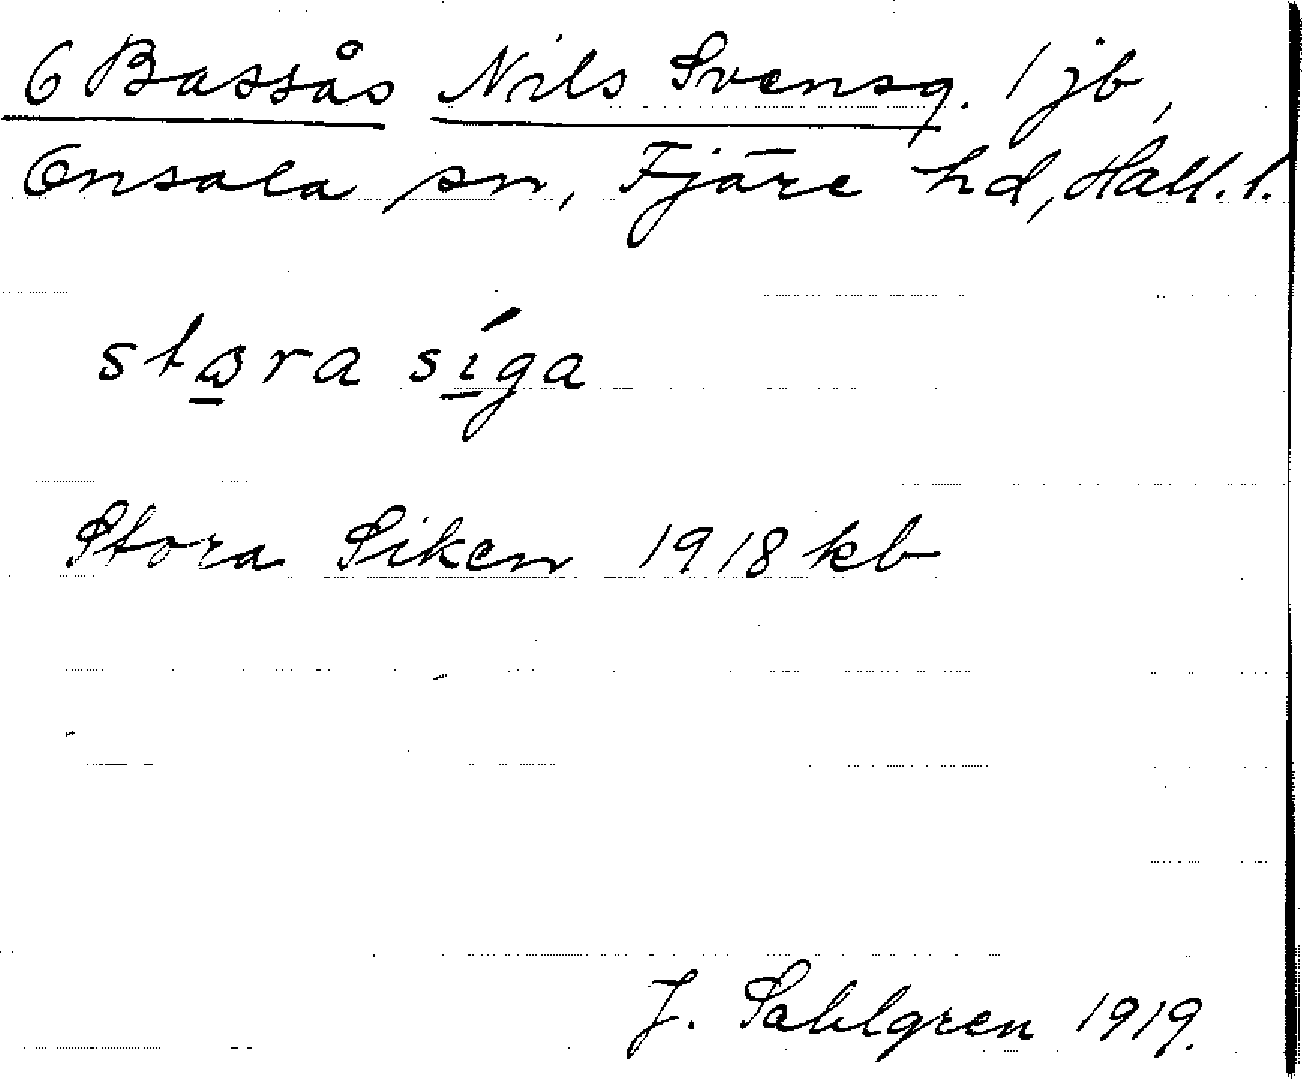 6 Bassås Nils Svensg. 1 jb,
Onsala sn, Fjäre hd, Hall. l.
stωra síga
Stora Siken 1918 kb
J. Sahlgren 1919.